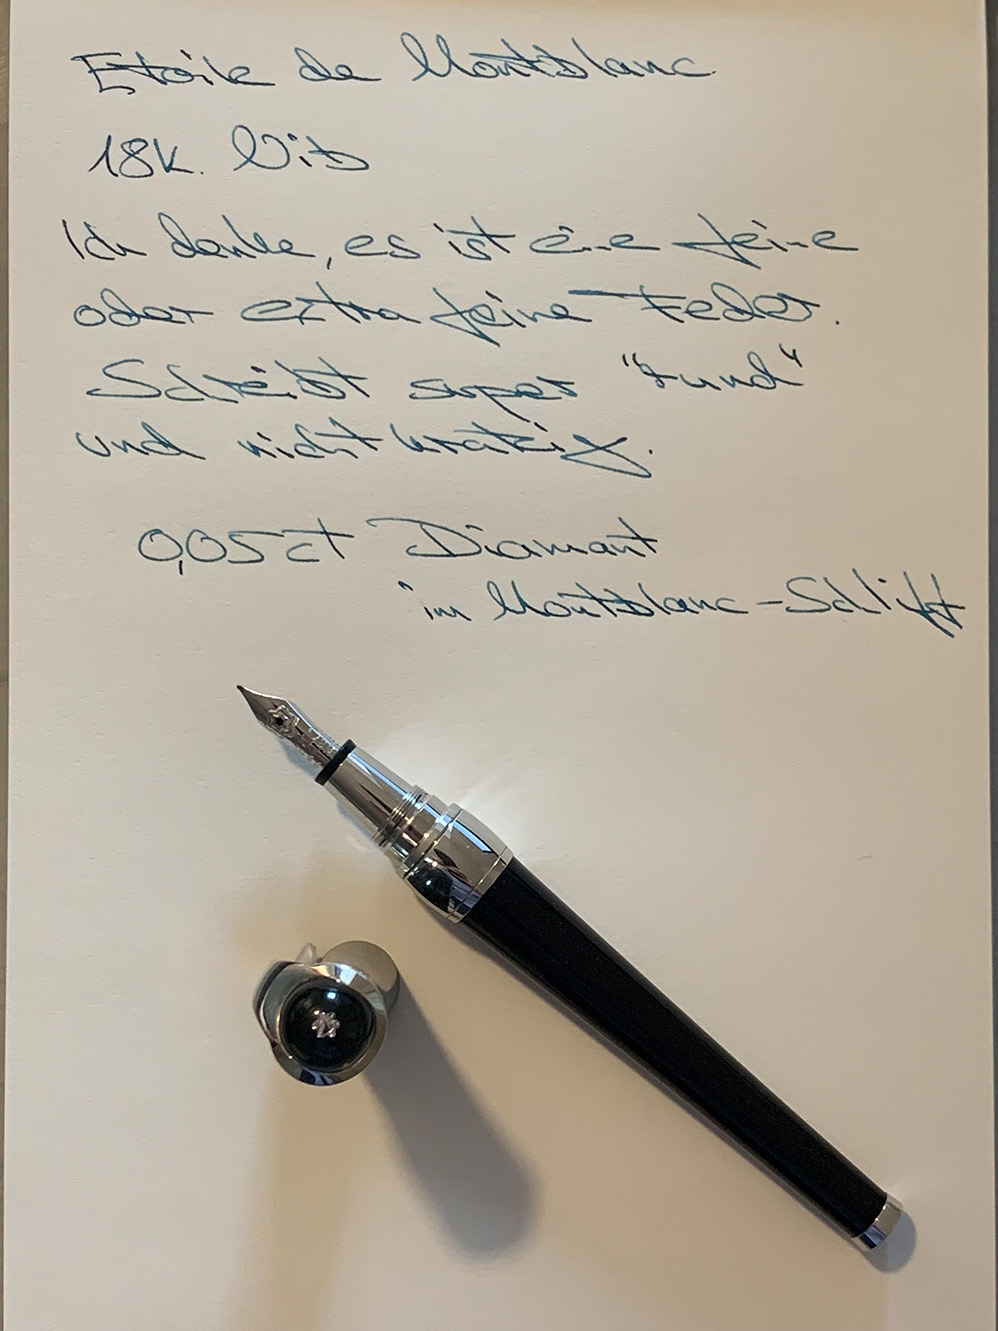 Etoile de Montblanc
18k. Nib
Ich denke, es ist eine feine
oder extra feine Feder.
Schreibt super "rund"
und nicht kratzig.
0,05 ct Diamant
im Montblanc-Schliff